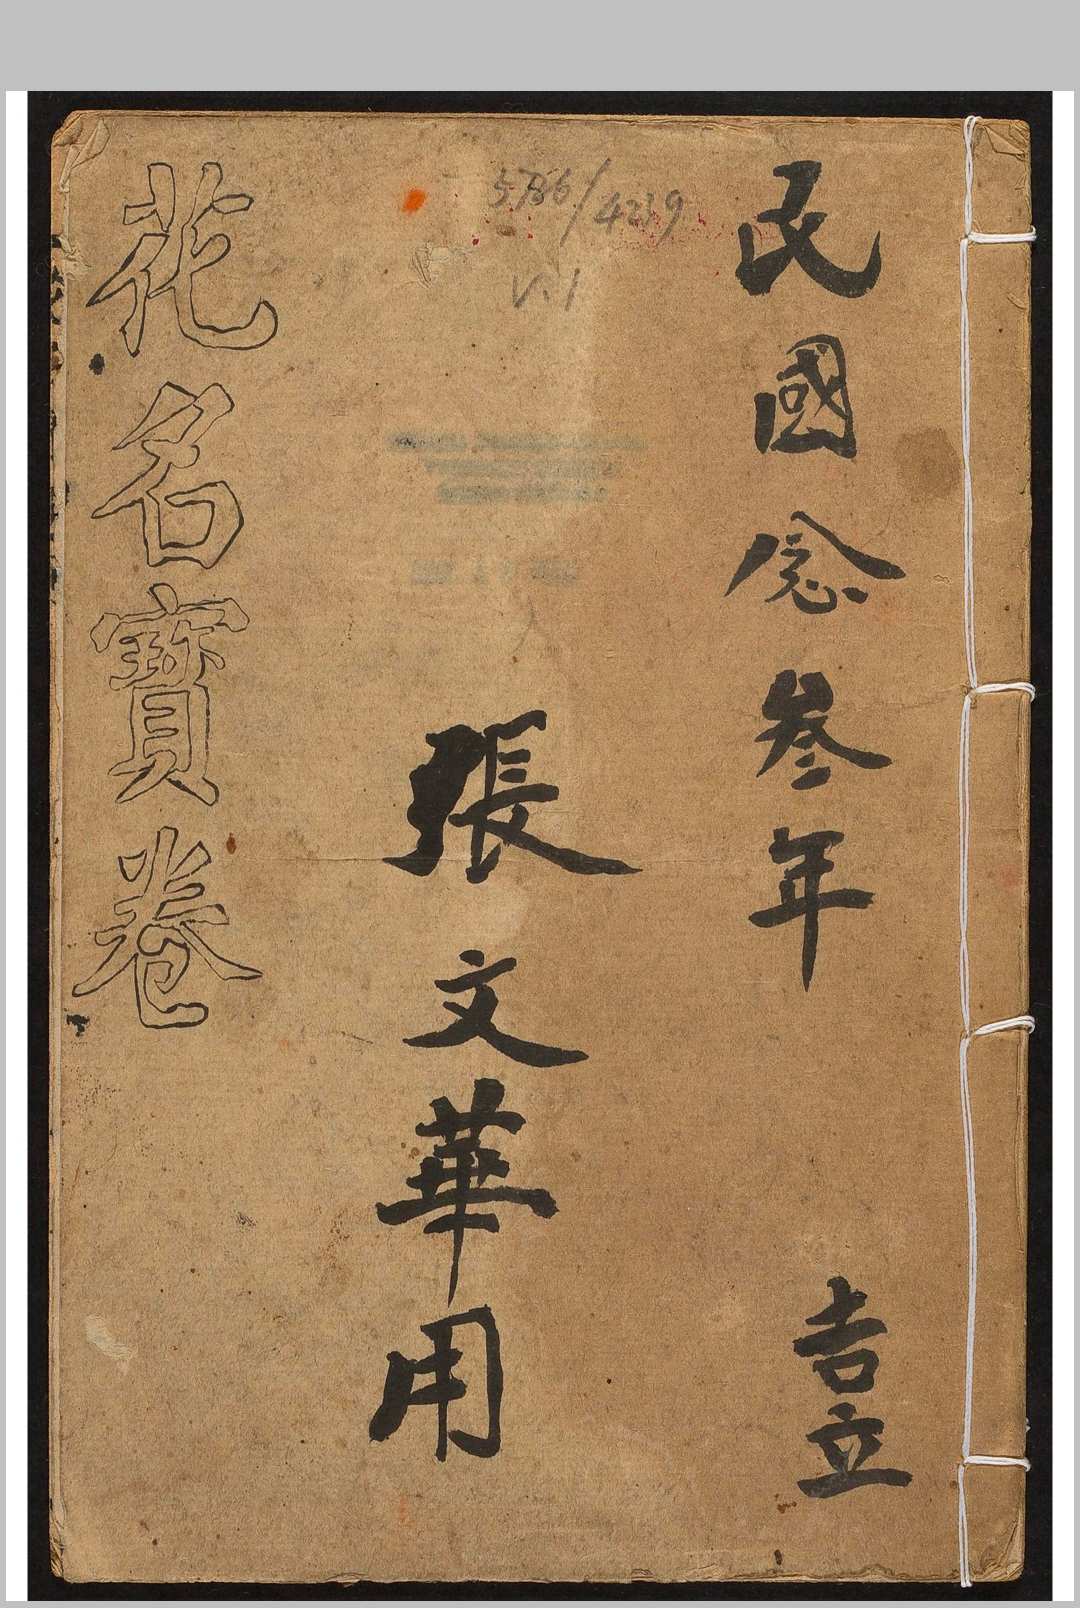 民國念叁年 吉立
張文華用
花名寳卷
5786/4239
V.1